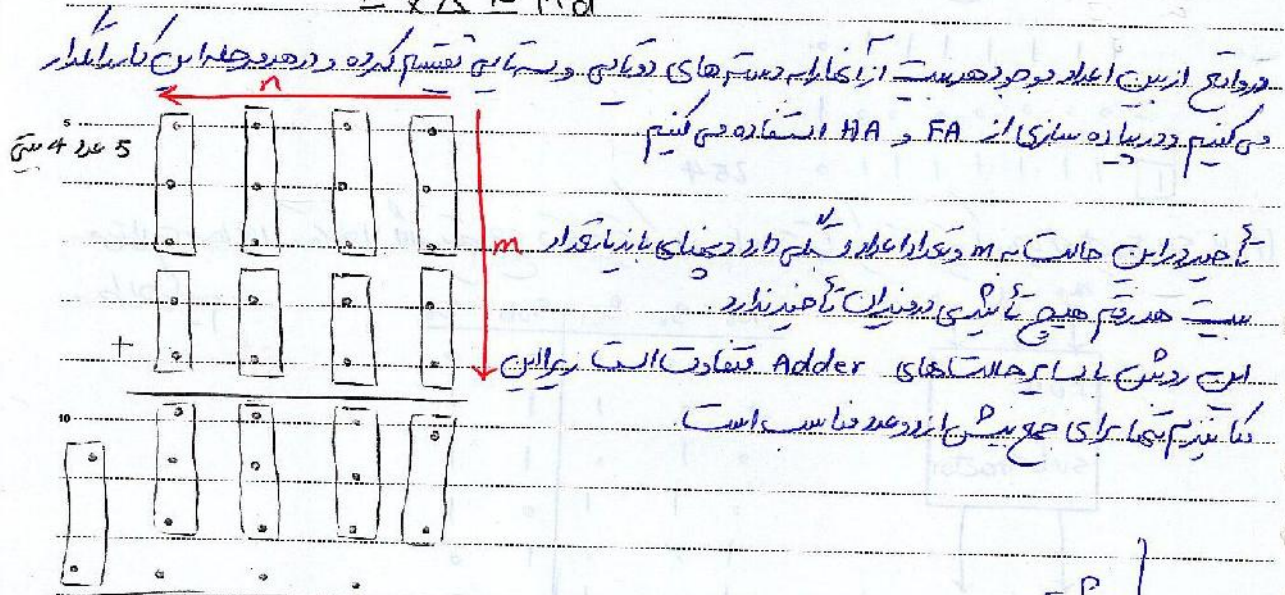 در واقع از بین اعداد موجود هر بیت از آنها را به دسته های دوتایی و سه تایی تقسیم کرده و در هر مرحله این کار را تکرار
می کنیم و در پیاده سازی از FA و HA استفاده می کنیم
n
5 عدد 4 بیتی
5
m
تأخیر در این حالت به m و تعداد اعداد بستگی دارد و پهنای باند یا تعداد
بیت هر رقم هیچ تأثیری در میزان تأخیر ندارد
این روش با سایر حالت های Adder متفاوت است زیرا این
+
10
مکانیزم تنها برای جمع بیش از دو عدد مناسب است